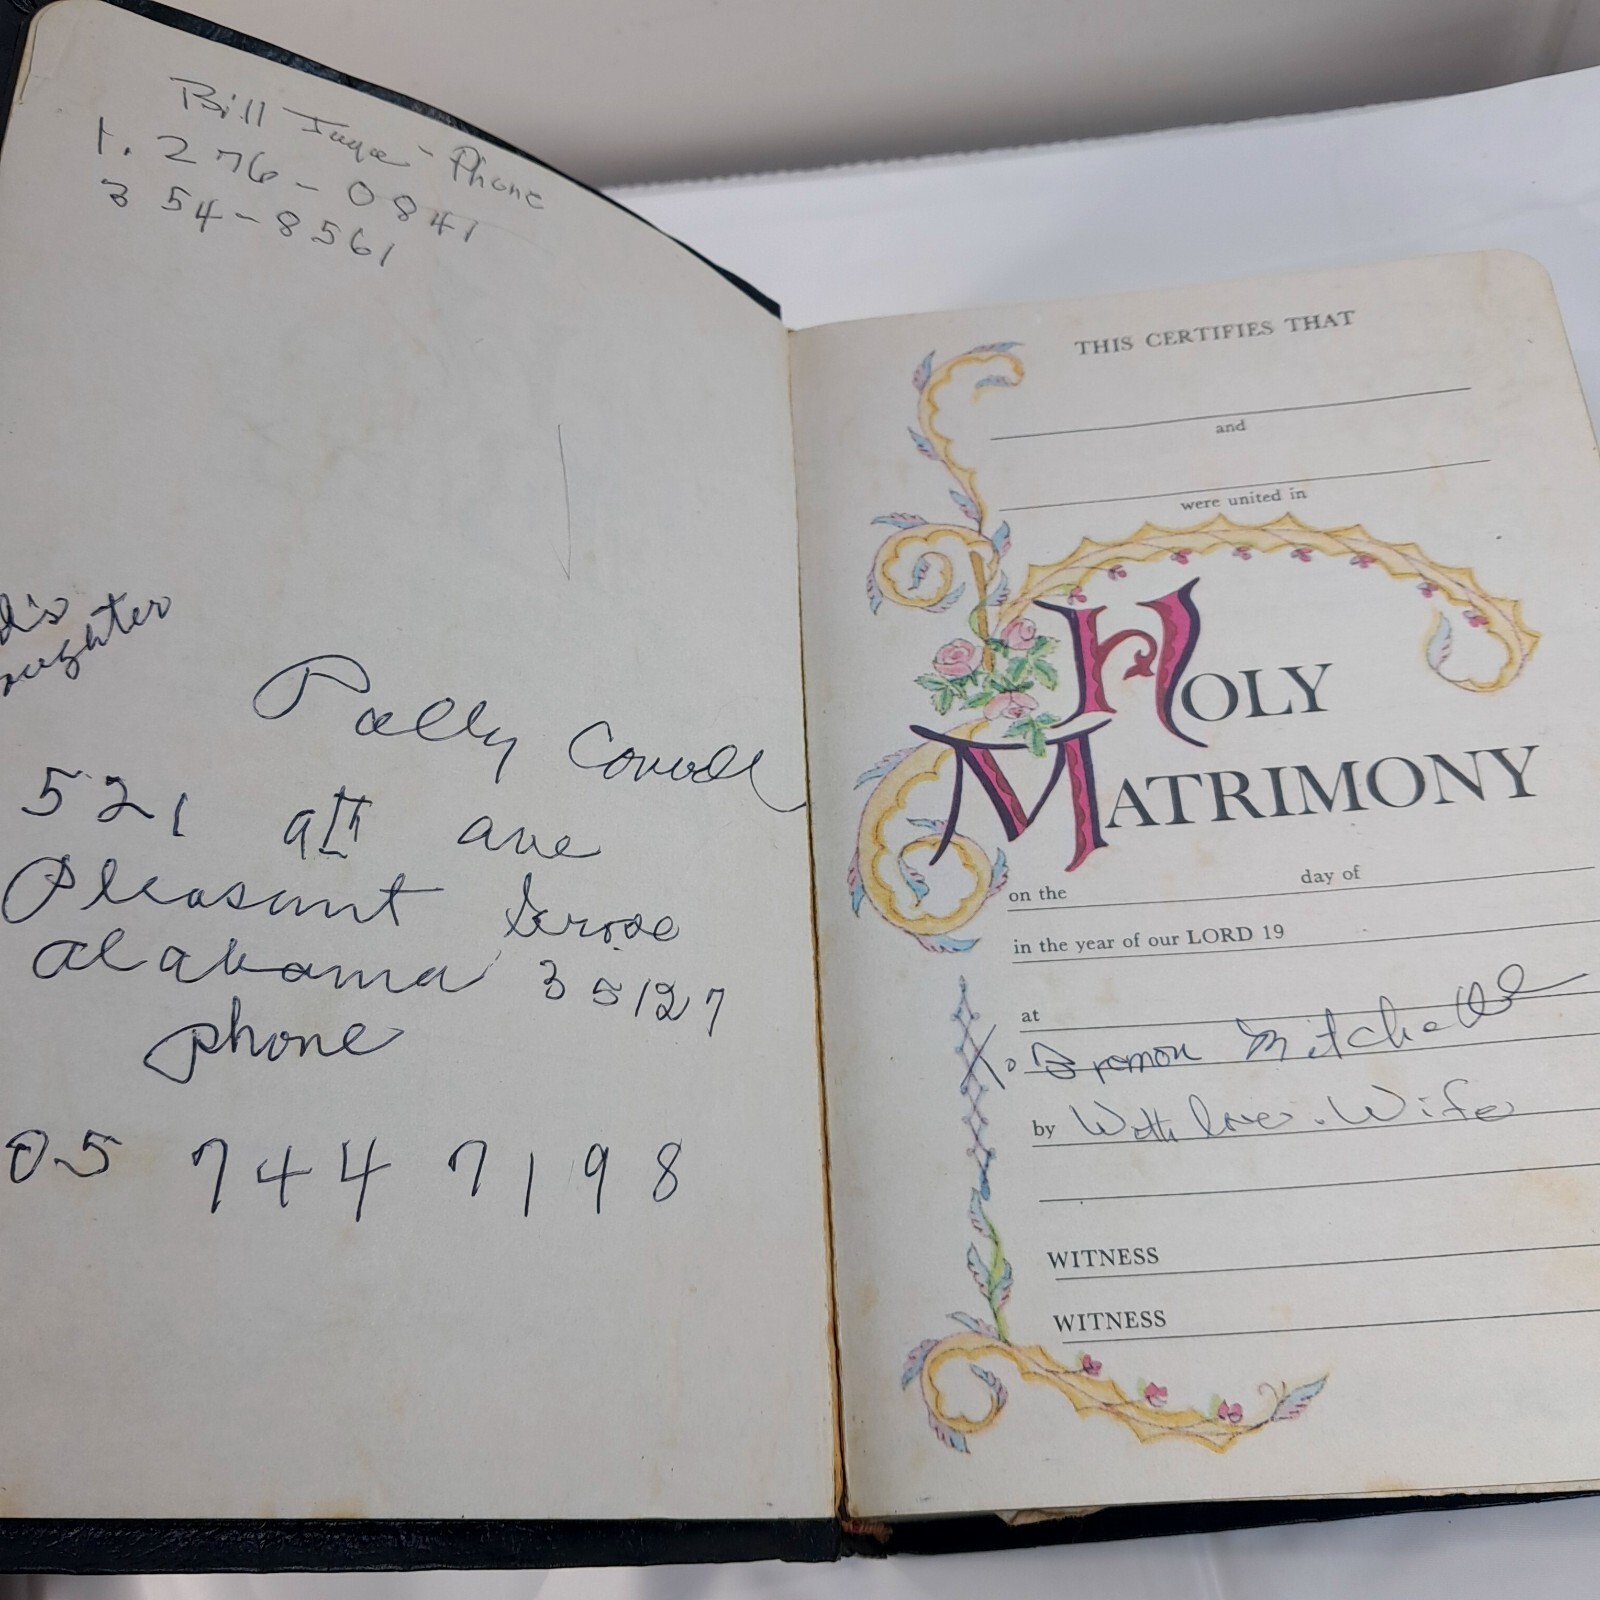 Bill - Phone
1. 276-0841
354-8561
Polly
521 9th ave
Pleasant Grove
alabama 35127
phone
05 744 7198
THIS CERTIFIES THAT
and
were united in
HOLY
MATRIMONY
on the day of
in the year of our LORD 19
at
Mitchell
by With love. Wife
WITNESS
WITNESS